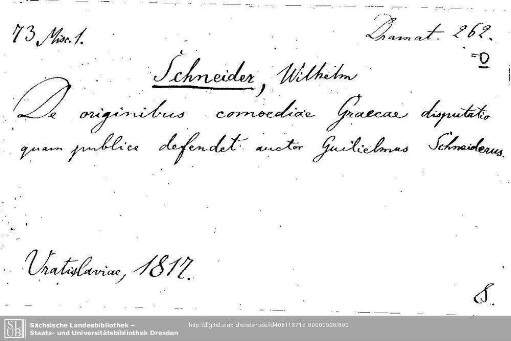 73 Misc. 1.
Dramat. 262.
D
Schneider, Wilhelm
De originibus comoediae Graecae disputatio
quam publice defendet auctor Guilielmus Schneiderus.
Vratislaviae, 1817.
8.
SLUB
Sächsische Landesbibliothek –
Staats- und Universitätsbibliothek Dresden